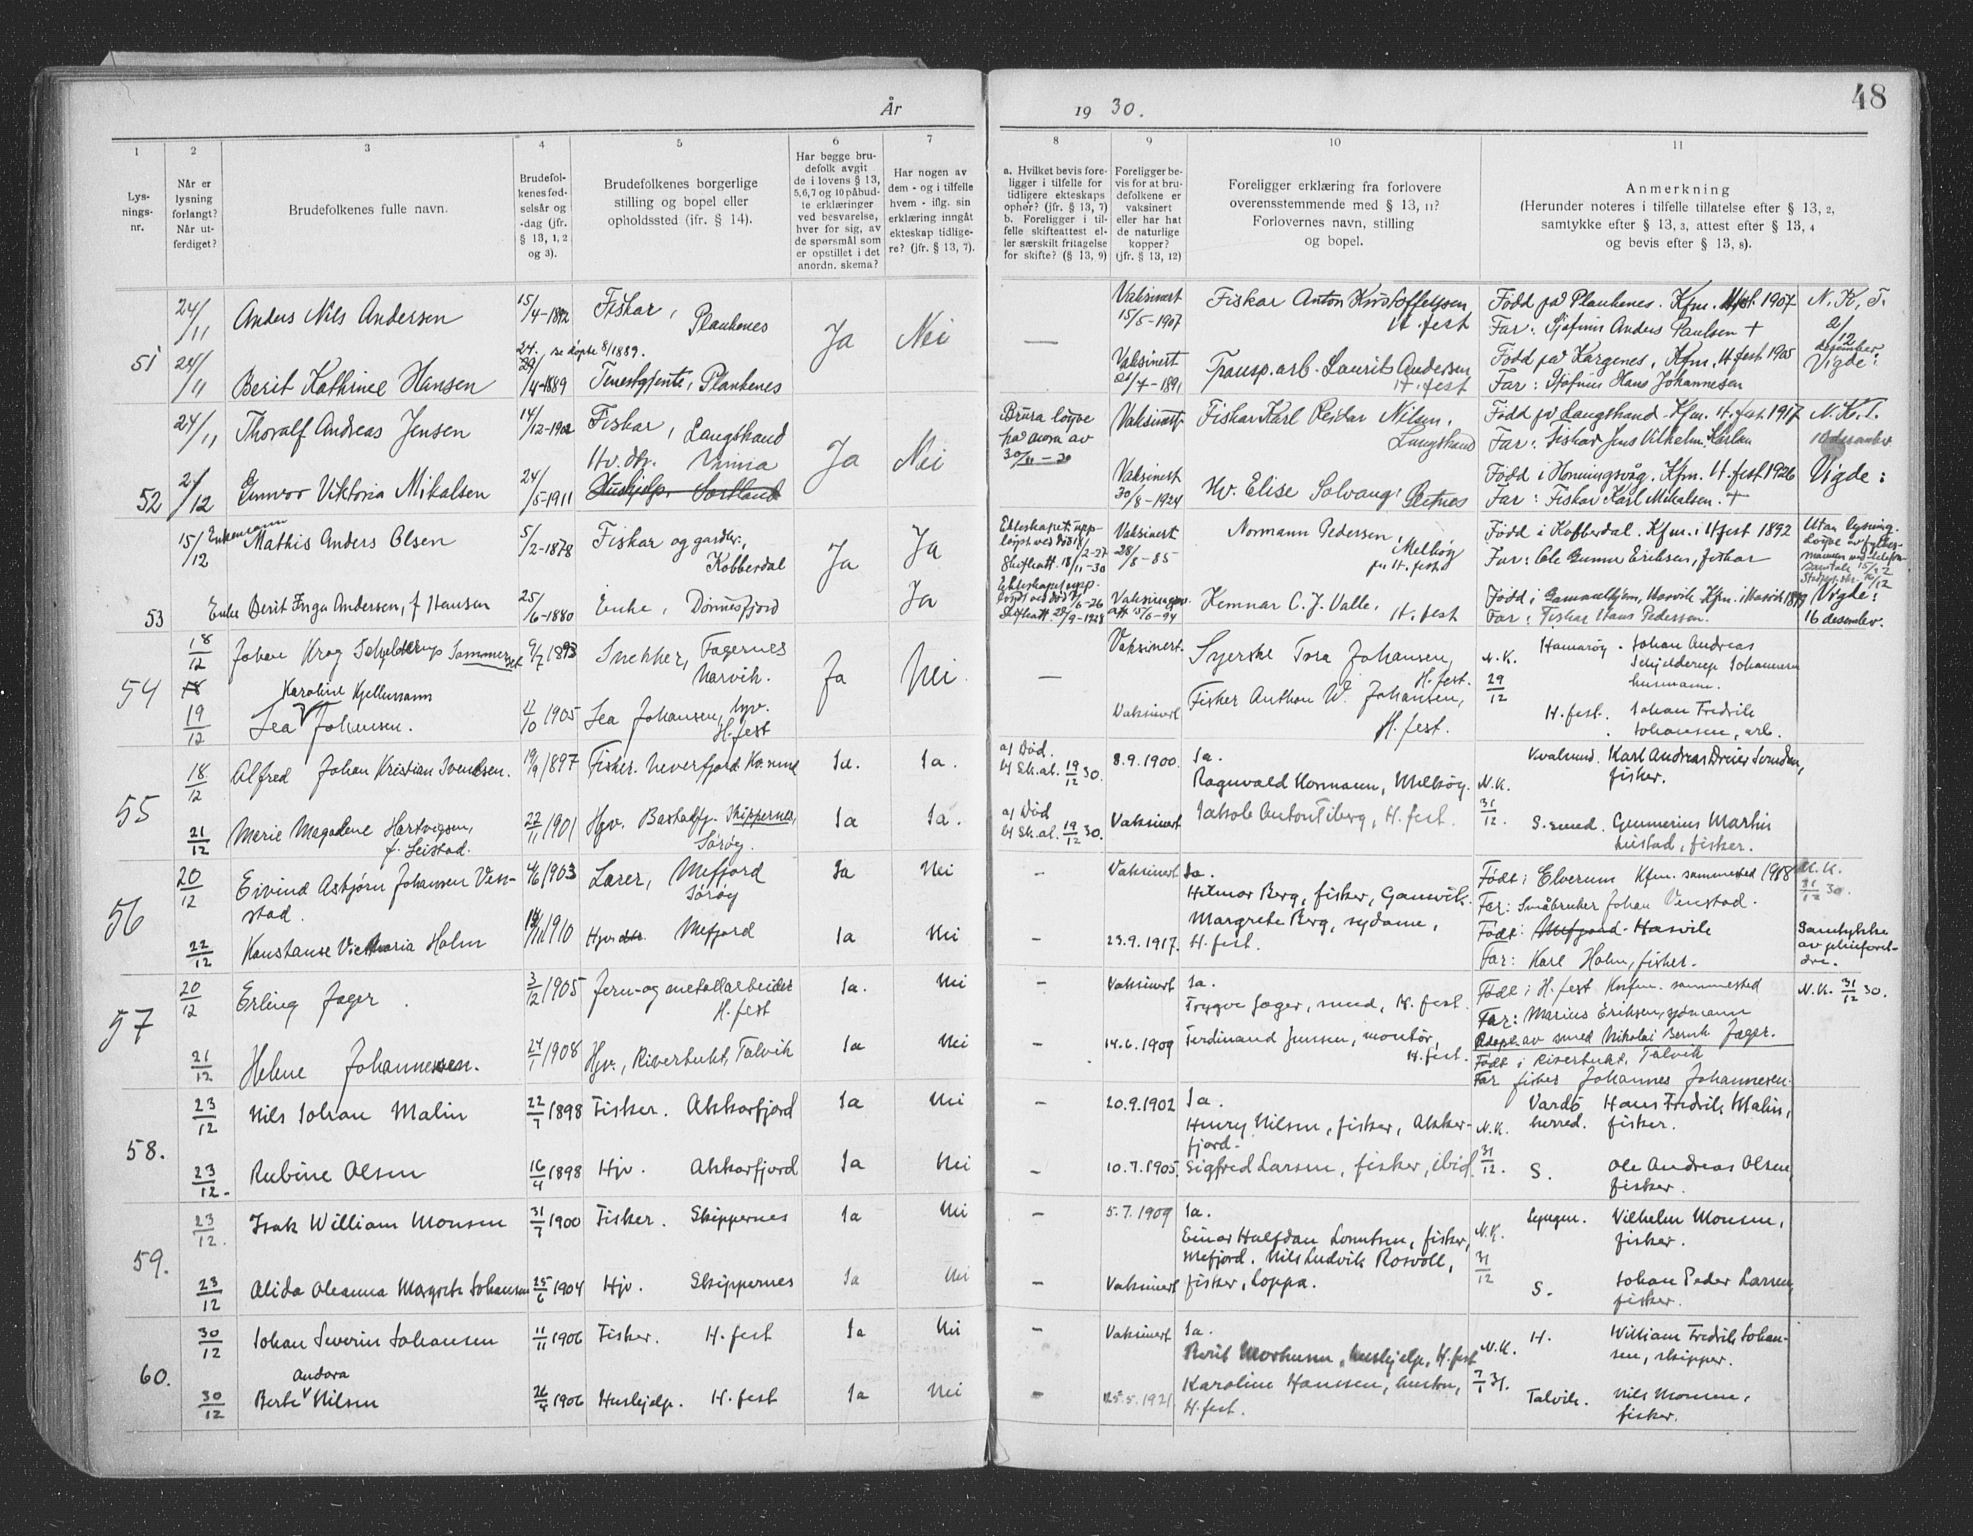 48
År
19 30.
1
2
3
4
5
6
7
8
9
10
11
Lys-
nings-
nr.
Når er
lysning
forlangt?
Når ut-
ferdiget?
Brudefolkenes fulle navn.
Brudefol-
kenes fød-
selsår og
-dag (jfr.
§ 13, 1, 2
og 3).
Brudefolkenes borgerlige
stilling og bopel eller
opholdssted (jfr. § 14).
Har begge bru-
defolk avgit
de i lovens § 13,
5,6,7 og 10 påbud-
te erklæringer
ved besvarelse,
hver for sig, av
de spørsmål som
er opstillet i det
anordn. skema?
Har nogen av
dem - og i tilfelle
hvem - iflg. sin
erklæring inngått
ekteskap tidlige-
re? (jfr. § 13, 7).
a. Hvilket bevis fore-
ligger i tilfelle for
tidligere ekteskaps
ophør? (jfr. § 13, 7)
b. Foreligger i til-
felle skifteattest el-
ler særskilt fritagelse
for skifte? (§ 13, 9)
Foreligger be-
vis for at bru-
defolkene er
vaksinert
eller har hat
de naturlige
kopper?
(jfr. § 13, 12)
Foreligger erklæring fra forlovere
overensstemmende med § 13, 11?
Forlovernes navn, stilling
og bopel.
Anmerkning
(Herunder noteres i tilfelle tillatelse efter § 13, 2,
samtykke efter § 13, 3, attest efter § 13, 4
og bevis efter § 13, 8).
51
24/11 Anders Nils Andersen 15/4-1892 Fiskar, Plankenes Ja Nei — Vaksinert 15/5-1907 Fiskar Anton Kristoffersen H.fest
Född på Plankenes. Kfm. H.fest 1907 N. K. T.
Far: Sjøfinn Anders Paulsen + 2/12 desember
24/11 Berit Kathrine Hansen 24/4-1889 se døpte 8/1889. Tenestgjente, Plankenes Vaksinert 7-1891 Transp.arb. Laurits Andersen H.fest
Född på Kargenes, Kfm. H.fest 1905 Vigde:
Far: Sjøfinn Hans Johannesen
52
24/11 Thoralf Andreas Jensen 14/12-1902 Fiskar, Langstrand Ja Nei Brura løyve frå mora av 30/11-30 Vaksinert Fiskar Karl Reidar Nilsen, Langstrand
Född på Langstrand. Kfm. H.fest 1917 N.K.T.
Far: Fiskar Jens Vilhelm Karlsen 10 desember
2/12 Gunvor Viktoria Mikalsen 24/5-1911 Hv. dtr. Huskjelp, Sortland Vaksinert 30/8-1924 Hv. Elise Solvang,
Född i Honningsvåg. Kfm. H.fest 1926 Vigde:
Far: Fiskar Karl Mikalsen. +
53
15/12 Enkemann Mathis Anders Olsen 5/2-1878 Fiskar og gardbr., Kobberdal Ja Ja Ekteskapet upp-
løyst ved død 18/2-27 Skifteatt. 18/11-30 Vaksinert 28/8-85 Normann Pedersen, Melkøy pr H.fest
Född i Kobberdal. Kfm. i H.fest 1892 Utan lysing.
Far: Ole Gunner Eriksen, fiskar
Enke Berit Inga Andersen, f. Hansen 25/6-1880 Enke, Dönnesfjord Ja Skifteatt. 29/9-1928 Kemnar C. J. Valle, H.fest
Far: Fiskar Hans Pedersen. Vigde: 16 desember.
54
18/12 Johan Krog Schjelderup Sammerset 9/7 1893 Snekker, Fagernes Narvik. Ja Nei. — Vaksinert. Syerske Tora Johansen, H.fest.
N.K. 29/12 Hamarøy - Johan Andreas Schjelderup Johannesen husmann.
19/12 Lea Karoline Kjellmann Johansen. 11/10 1905 Lea Johansen, hjv. H.fest Vaksinert Fisker Anthon W. Johansen, H.fest.
H.fest. Johan Fredrik Johansen, arb.
55
18/12 Alfred Johan Kristian Svendsen. 19/9 1897 Fisker. Neverfjord. Kv.sund Ja. Ja. a) Død. b) Sk.at. 19/12 30. 8.9.1900. Ja. Ragnvald Normann, Melkøy.
N.K. 31/12. Kvalsund. Karl Andreas Dreier Svendsen, fisker.
21/12 Marie Magdalene Hartvigsen, f. Leistad. 22/11 1901 Hjv. Bastafj. Skippernes, Sørøy. Ja Ja. a) Død b) Sk.at. 19/12 30. Vaksinert Jakob Anton Tiberg, H.fest.
S.sund. Gunnerius Martin Leistad, fisker.
56
20/12 Eivind Asbjørn Johansen Ven-
stad. 4/6 1903 Lærer, Mefjord Sørøy Ja Nei - Vaksinert Ja. Hilmar Berg, fisker, Gamvik.
Født: Elverum Kfm. sammested 1918 N.K. 31/12 30.
Far: Småbruker Johan Venstad.
22/12 Konstanse Victoria Holm 14/11 1910 Hjv. dtr. Mefjord Ja Nei - 23.9.1917. Margrete Berg, sydame, H.fest.
Født: Mefjord - Hasvik Samtykke av pleieforel-
dre.
Far: Karl Holm, fisker.
57
20/12 Erling Jager. 3/12 1905 Jern- og metallarbeider H.fest Ja. Nei - Vaksinert Ja. Trygve Jager, smed, H.fest.
Født i H.fest Konfm. sammested N.K. 31/12 30.
Far: Marius Eriksen, sjømann
Adopt. av smed Nikolai Bernh. Jager.
21/12 Helene Johannesen. 24/1 1908 Hjv., Riverbukt, Talvik Ja Nei - 14.6.1909 Ferdinand Jenssen, montør, H.fest.
Født i Riverbukt, Talvik
Far fisker Johannes Johannesen.
58.
23/12 Nils Johan Malin 22/7 1898 Fisker. Akkarfjord Ja Nei - 20.9.1902 Ja. Henry Nilsen, fisker, Akker-
fjord.
Vardø herred. Hans Fredrik Malin, fisker.
N.K. 31/12.
23/12. Rubine Olsen 16/4 1898 Hjv. Akkarfjord Ja Nei - 10.7.1905. Sigfred Larsen, fisker, ibid.
S. Ole Andreas Olsen, fisker.
59.
23/12. Isak William Monsen 31/7 1900 Fisker. Skippernes Ja Nei - 5.7.1909 Ja. Einar Halfdan Lorentsen, fisker, Mefjord.
N.K. 31/12 Lyngen. Vilhelm Monsen, fisker.
23/12 Alida Oleanna Margrete Johansen 25/6 1904 Hjv. Skippernes Ja Nei - Vaksinert Nils Ludvik Rosvoll, fisker, Loppa.
S. Johan Peder Larsen, fisker.
60.
30/12 Johan Severin Johansen 11/11 1906 Fisker. H.fest Ja Nei - Vaksinert Ja. Berit Morhum, huskjelp, H.fest
N.K. 7/1 31. H. William Fredrik Johan-
sen, skipper.
30/12 Berte Andora Nilsen 26/4 1906 Huskjelp. H.fest Ja Nei - 25.5.1921 Karoline Hanssen, hustru, H.fest.
Talvik. Nils Monsen, fisker.